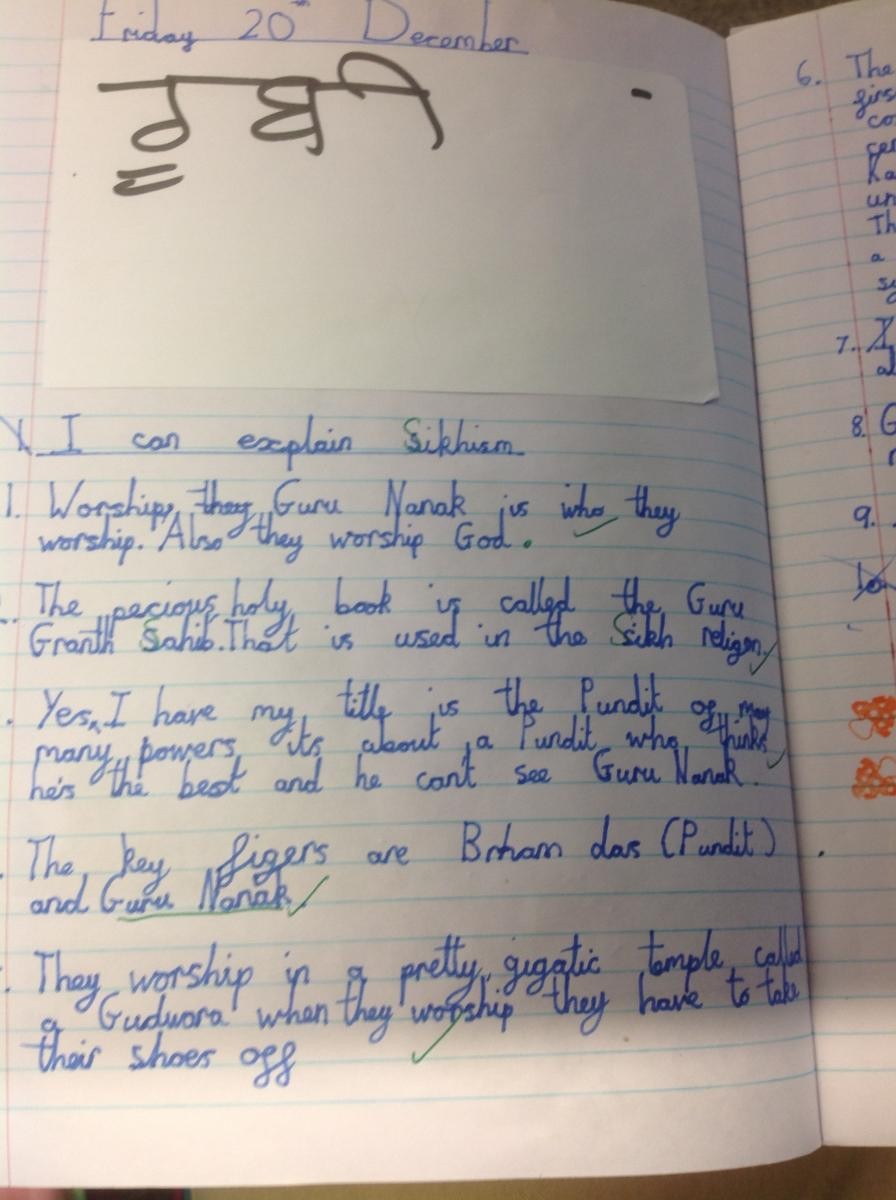 Friday 20th December
ਰੂਬੀ
I can explain Sikhism
1. Worship, they Guru Nanak is who they
worship. Also they worship God.
The pecious holy book is called the Guru
Granth Sahib. That is used in the Sikh religon.
Yes, I have my title is the Pundit of may
many powers its about a Pundit who thinks
he's the best and he can't see Guru Nanak.
The key figers are Brham das (Pundit)
and Guru Nanak
They worship in a pretty gigatic temple called
a Gudwara when they worship they have to take
their shoes off
6. The
7.
8. G
9.